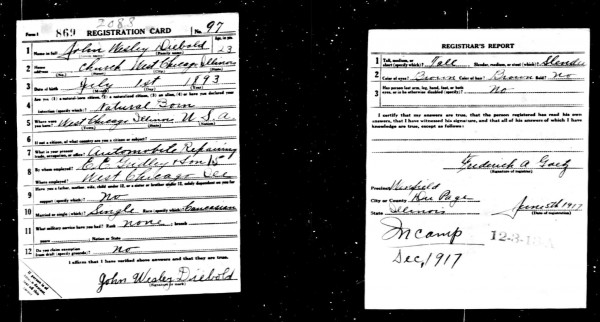 2088
Form 1 869 REGISTRATION CARD No. 97
1 Name in full John Wesley Diebold Age, in yrs. 23
2 Home address Church West Chicago Illinois
3 Date of birth July 1st 1893
4 Are you (1) a natural-born citizen, (2) a naturalized citizen, (3) an alien, (4) or have you declared your
intention (specify which)? Natural Born
5 Where were you born? West Chicago Illinois U.S.A.
6 If not a citizen, of what country are you a citizen or subject?
7 What is your present trade, occupation, or office? Automobile Repairing
8 By whom employed?
Where employed? West Chicago Ill
9 Have you a father, mother, wife, child under 12, or a sister or brother under 12, solely dependent on you for
support (specify which)? No
10 Married or single (which)? Single Race (specify which)? Caucasian
11 What military service have you had? Rank none ; branch
years Nation or State
12 Do you claim exemption from draft (specify grounds)? No
I affirm that I have verified above answers and that they are true.
John Wesley Diebold
(Signature or mark)
REGISTRAR'S REPORT
1 Tall, medium, or short (specify which)? Tall Slender, medium, or stout (which)? Slender
2 Color of eyes? Brown Color of hair? Brown Bald? No
3 Has person lost arm, leg, hand, foot, or both
eyes, or is he otherwise disabled (specify)? No
I certify that my answers are true, that the person registered has read his own
answers, that I have witnessed his signature, and that all of his answers of which I have
knowledge are true, except as follows:
Frederick A
(Signature of registrar)
Precinct Winfield
City or County Du Page
State Illinois June 5th 1917
(Date of registration)
In camp
Dec, 1917